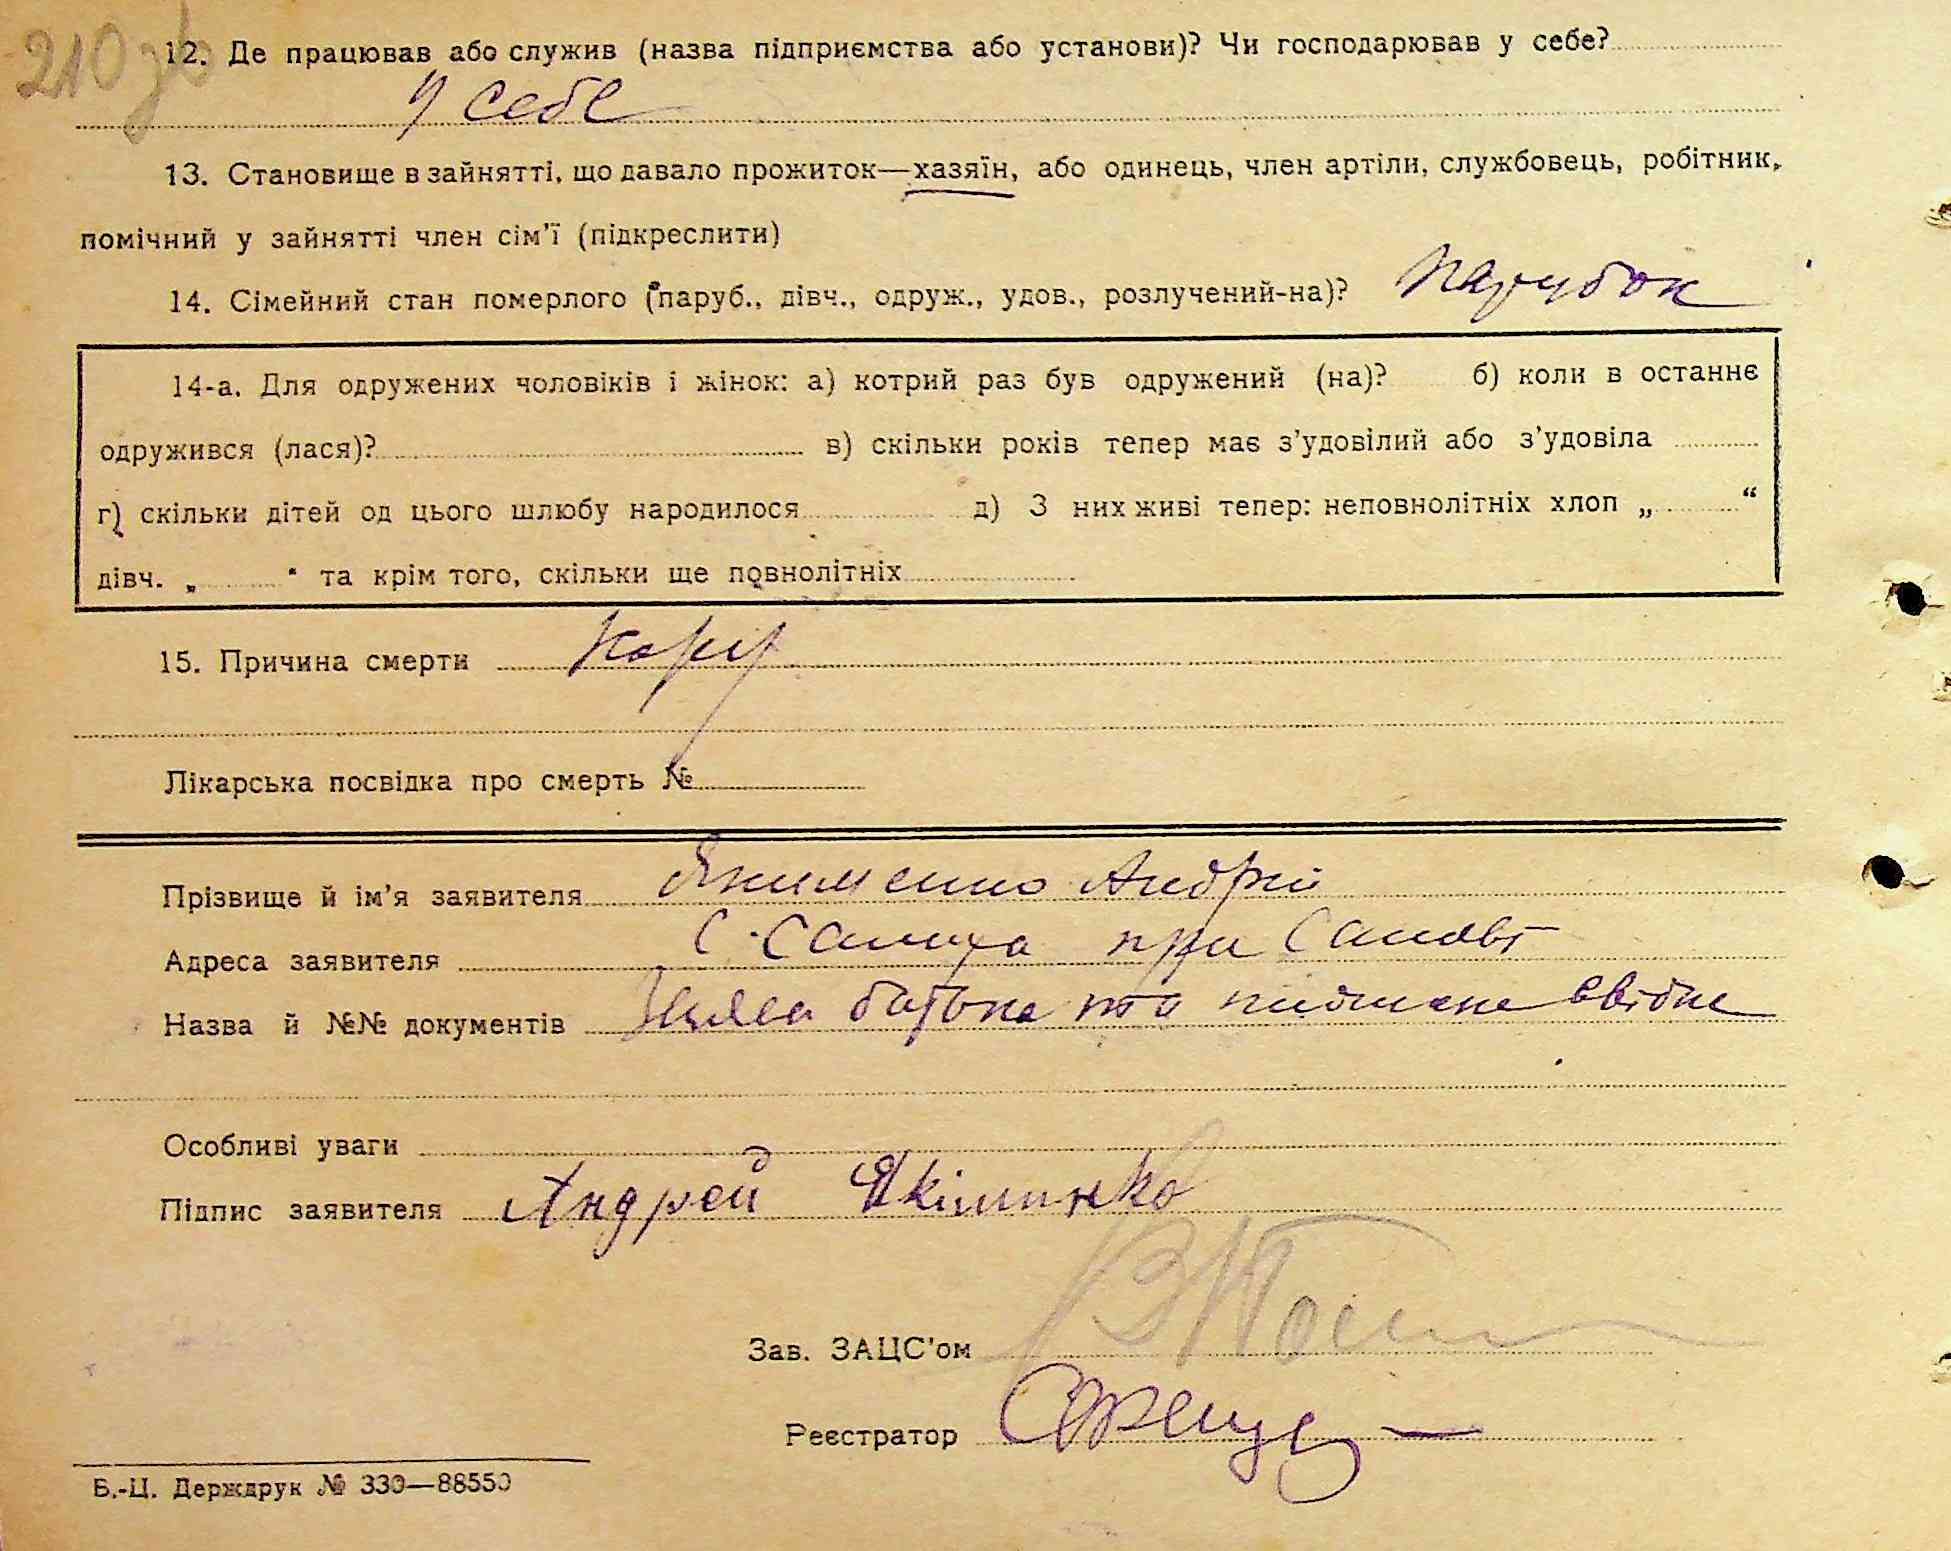 210 зв
12. Де працював або служив (назва підприємства або установи)? Чи господарював у себе?
У себе
13. Становище в зайнятті, що давало прожиток—хазяїн, або одинець, член артіли, службовець, робітник,
помічний у зайнятті член сім'ї (підкреслити)
14. Сімейний стан померлого (паруб., дівч., одруж., удов., розлучений-на)? Парубок
14-а. Для одружених чоловіків і жінок: а) котрий раз був одружений (на)? б) коли в останнє
одружився (лася)? в) скільки років тепер має з'удовілий або з'удовіла
г) скільки дітей од цього шлюбу народилося д) З них живі тепер: неповнолітніх хлоп „ “
дівч. „ “ та крім того, скільки ще повнолітніх
15. Причина смерти Кір
Лікарська посвідка про смерть №
Прізвище й ім'я заявителя Якименко Андрій
Адреса заявителя С. при
Назва й №№ документів батька
Особливі уваги
Підпис заявителя Андрей Якіминко
Зав. ЗАЦС'ом
Реєстратор
Б.-Ц. Держдрук № 330—88550